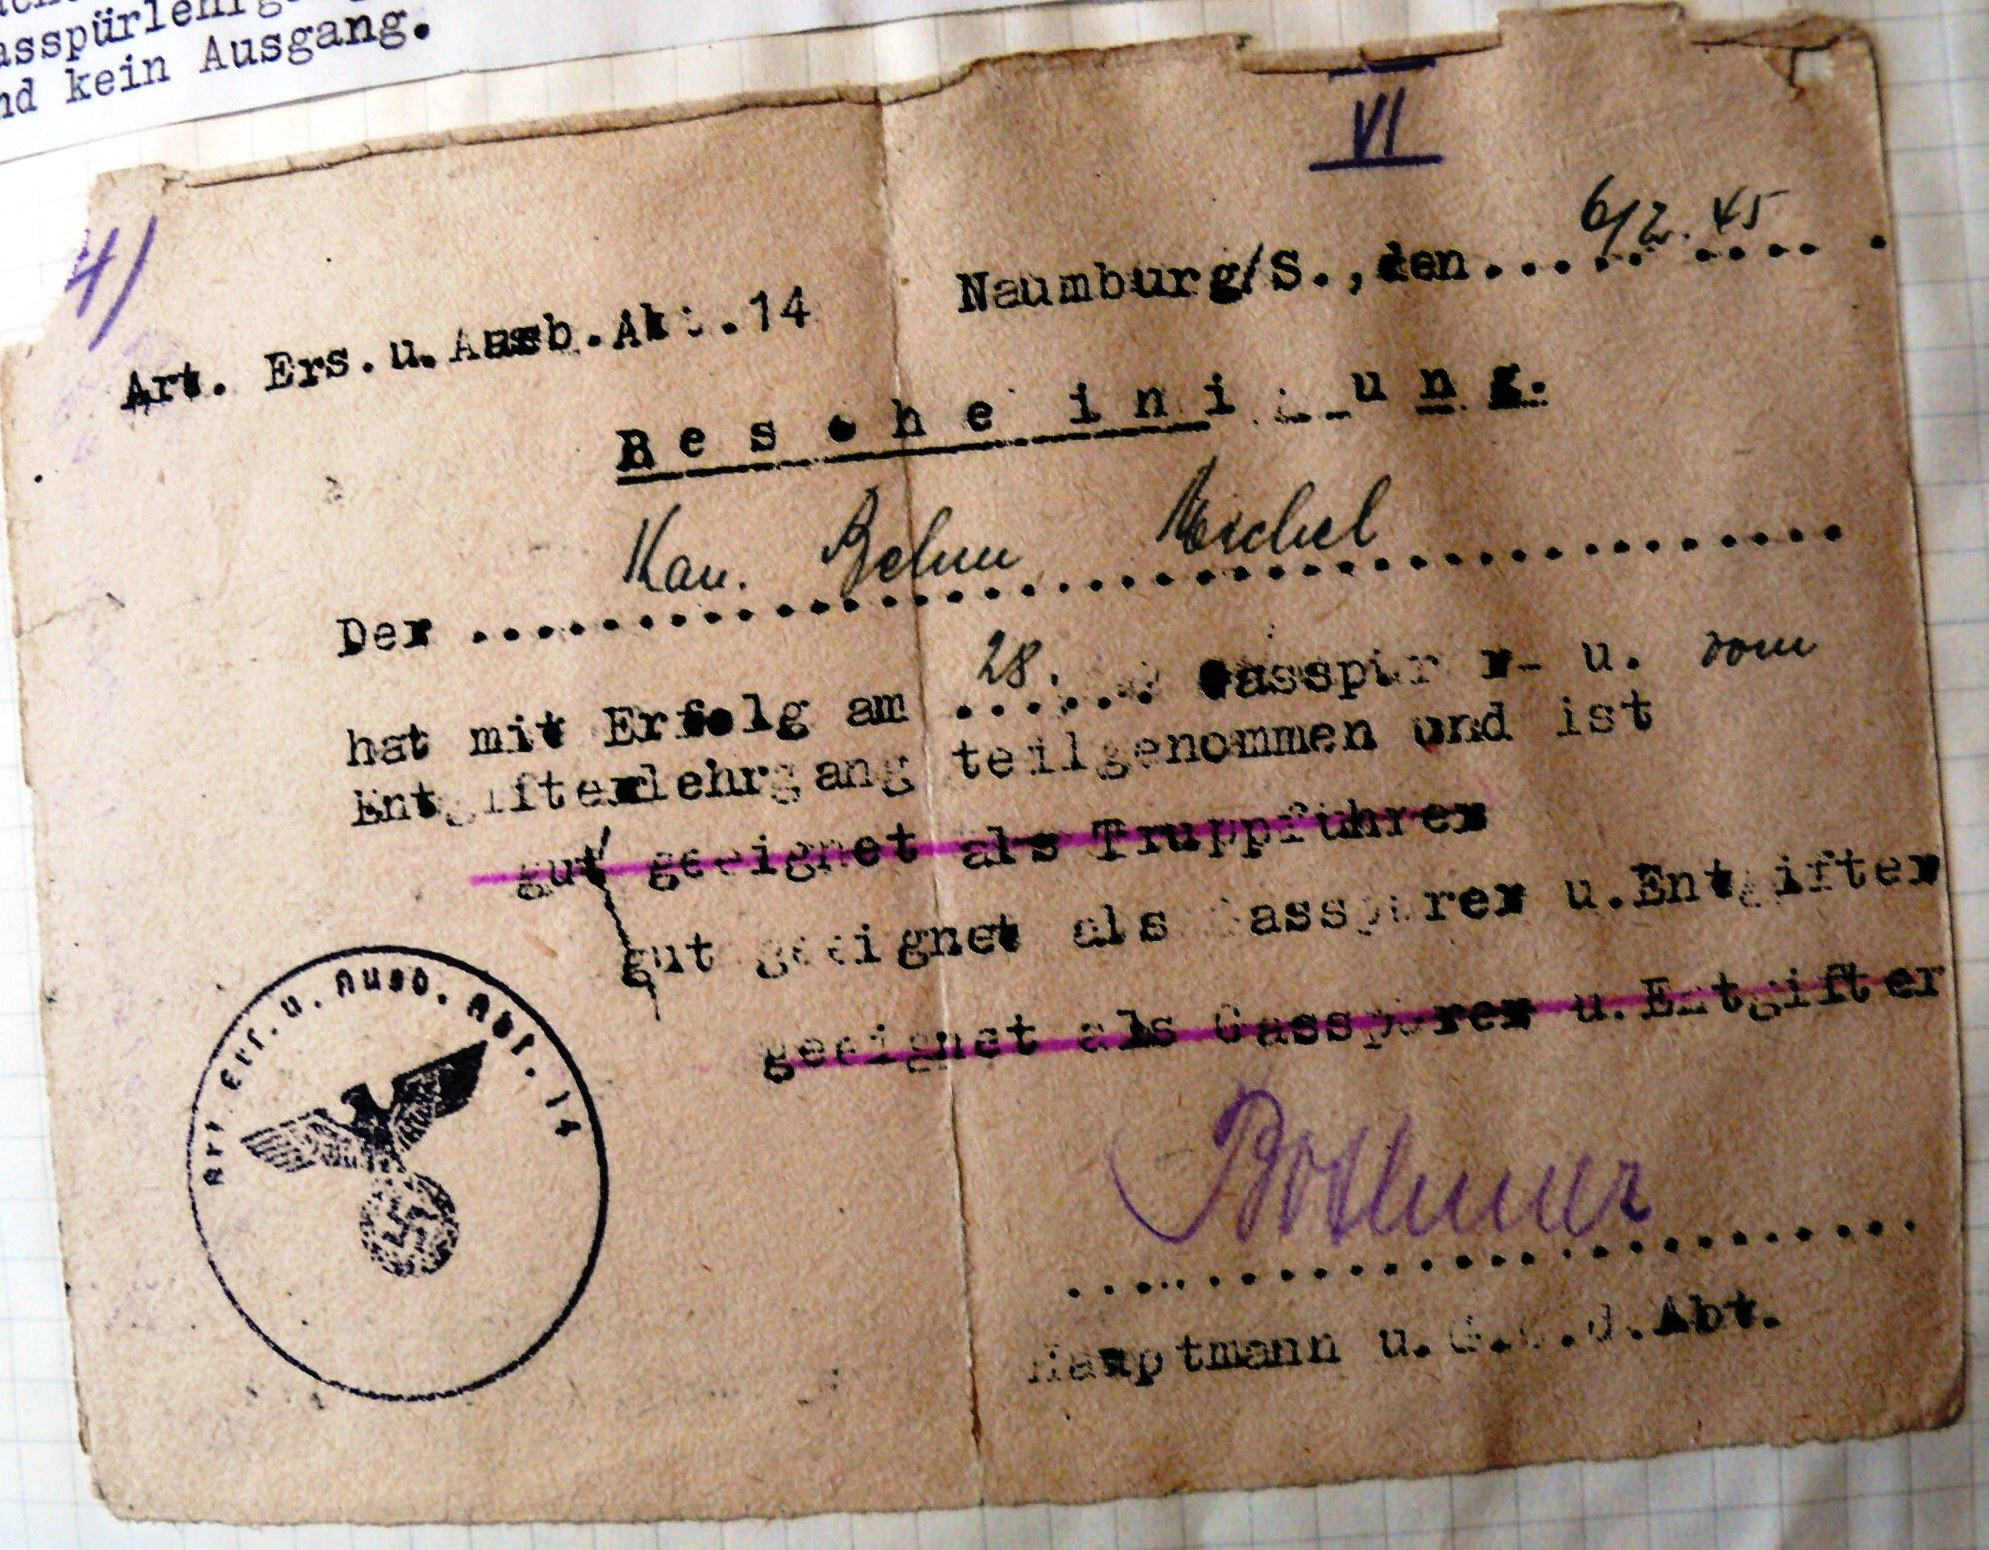 asspürlehrg
nd kein Ausgang.
VI
4)
Art. Ers.u.Ausb.Abt.14 Naumburg/S.,den 6/2. 45
Bescheinigung.
Der Kan. Behm Michel
hat mit Erfolg am 28. Gasspürer- u. vom
Entgifterlehrgang teilgenommen und ist
gut geeignet als Truppführer
gut geeignet als Gasspürer u.Entgifter
geeignet als Gasspürer u.Entgifter
Art. Ers. u. Ausb. Abt. 14
Hauptmann u. d.Abt.